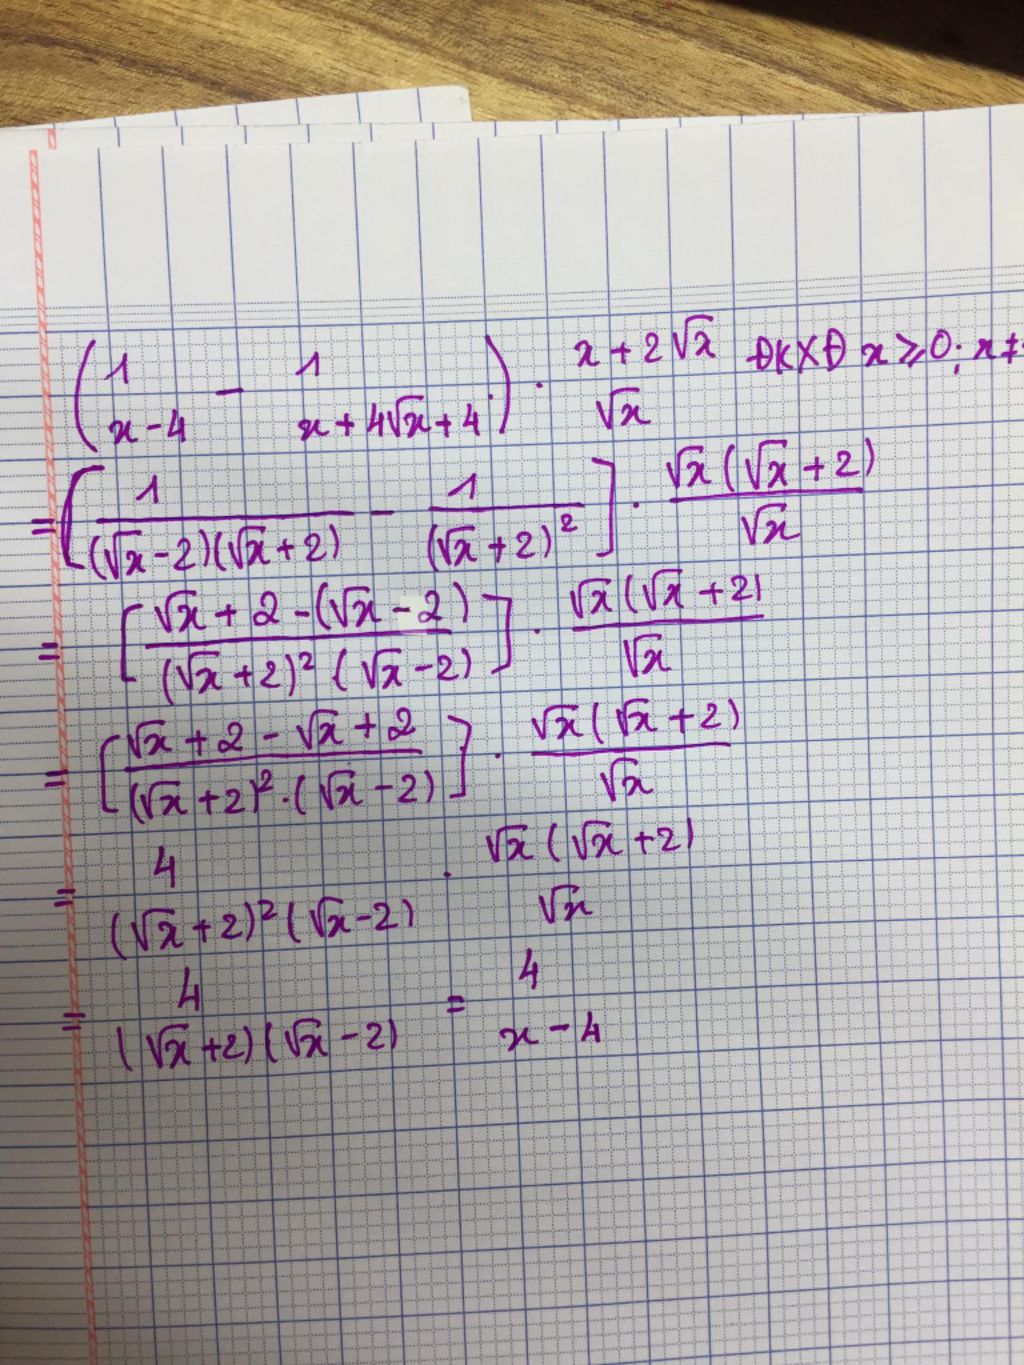 (1/(x-4) - 1/(x+4√x+4)) · (x+2√x)/√x ĐKXĐ x ≥ 0; x ≠
= [1/((√x-2)(√x+2)) - 1/(√x+2)²] · √x(√x+2)/√x
= [(√x+2-(√x-2))/((√x+2)²(√x-2))] · √x(√x+2)/√x
= [(√x+2-√x+2)/((√x+2)².(√x-2))] · √x(√x+2)/√x
= 4/((√x+2)²(√x-2)) · √x(√x+2)/√x
= 4/((√x+2)(√x-2)) = 4/(x-4)